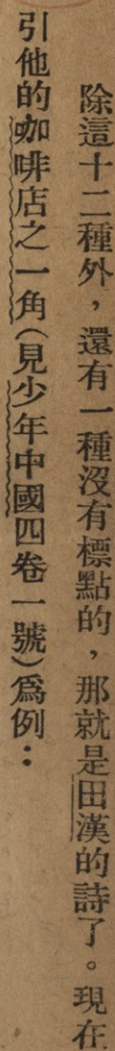 除這十二種外，還有一種沒有標點的，那就是田漢的詩了。現在
引他的咖啡店之一角（見少年中國四卷一號）爲例：